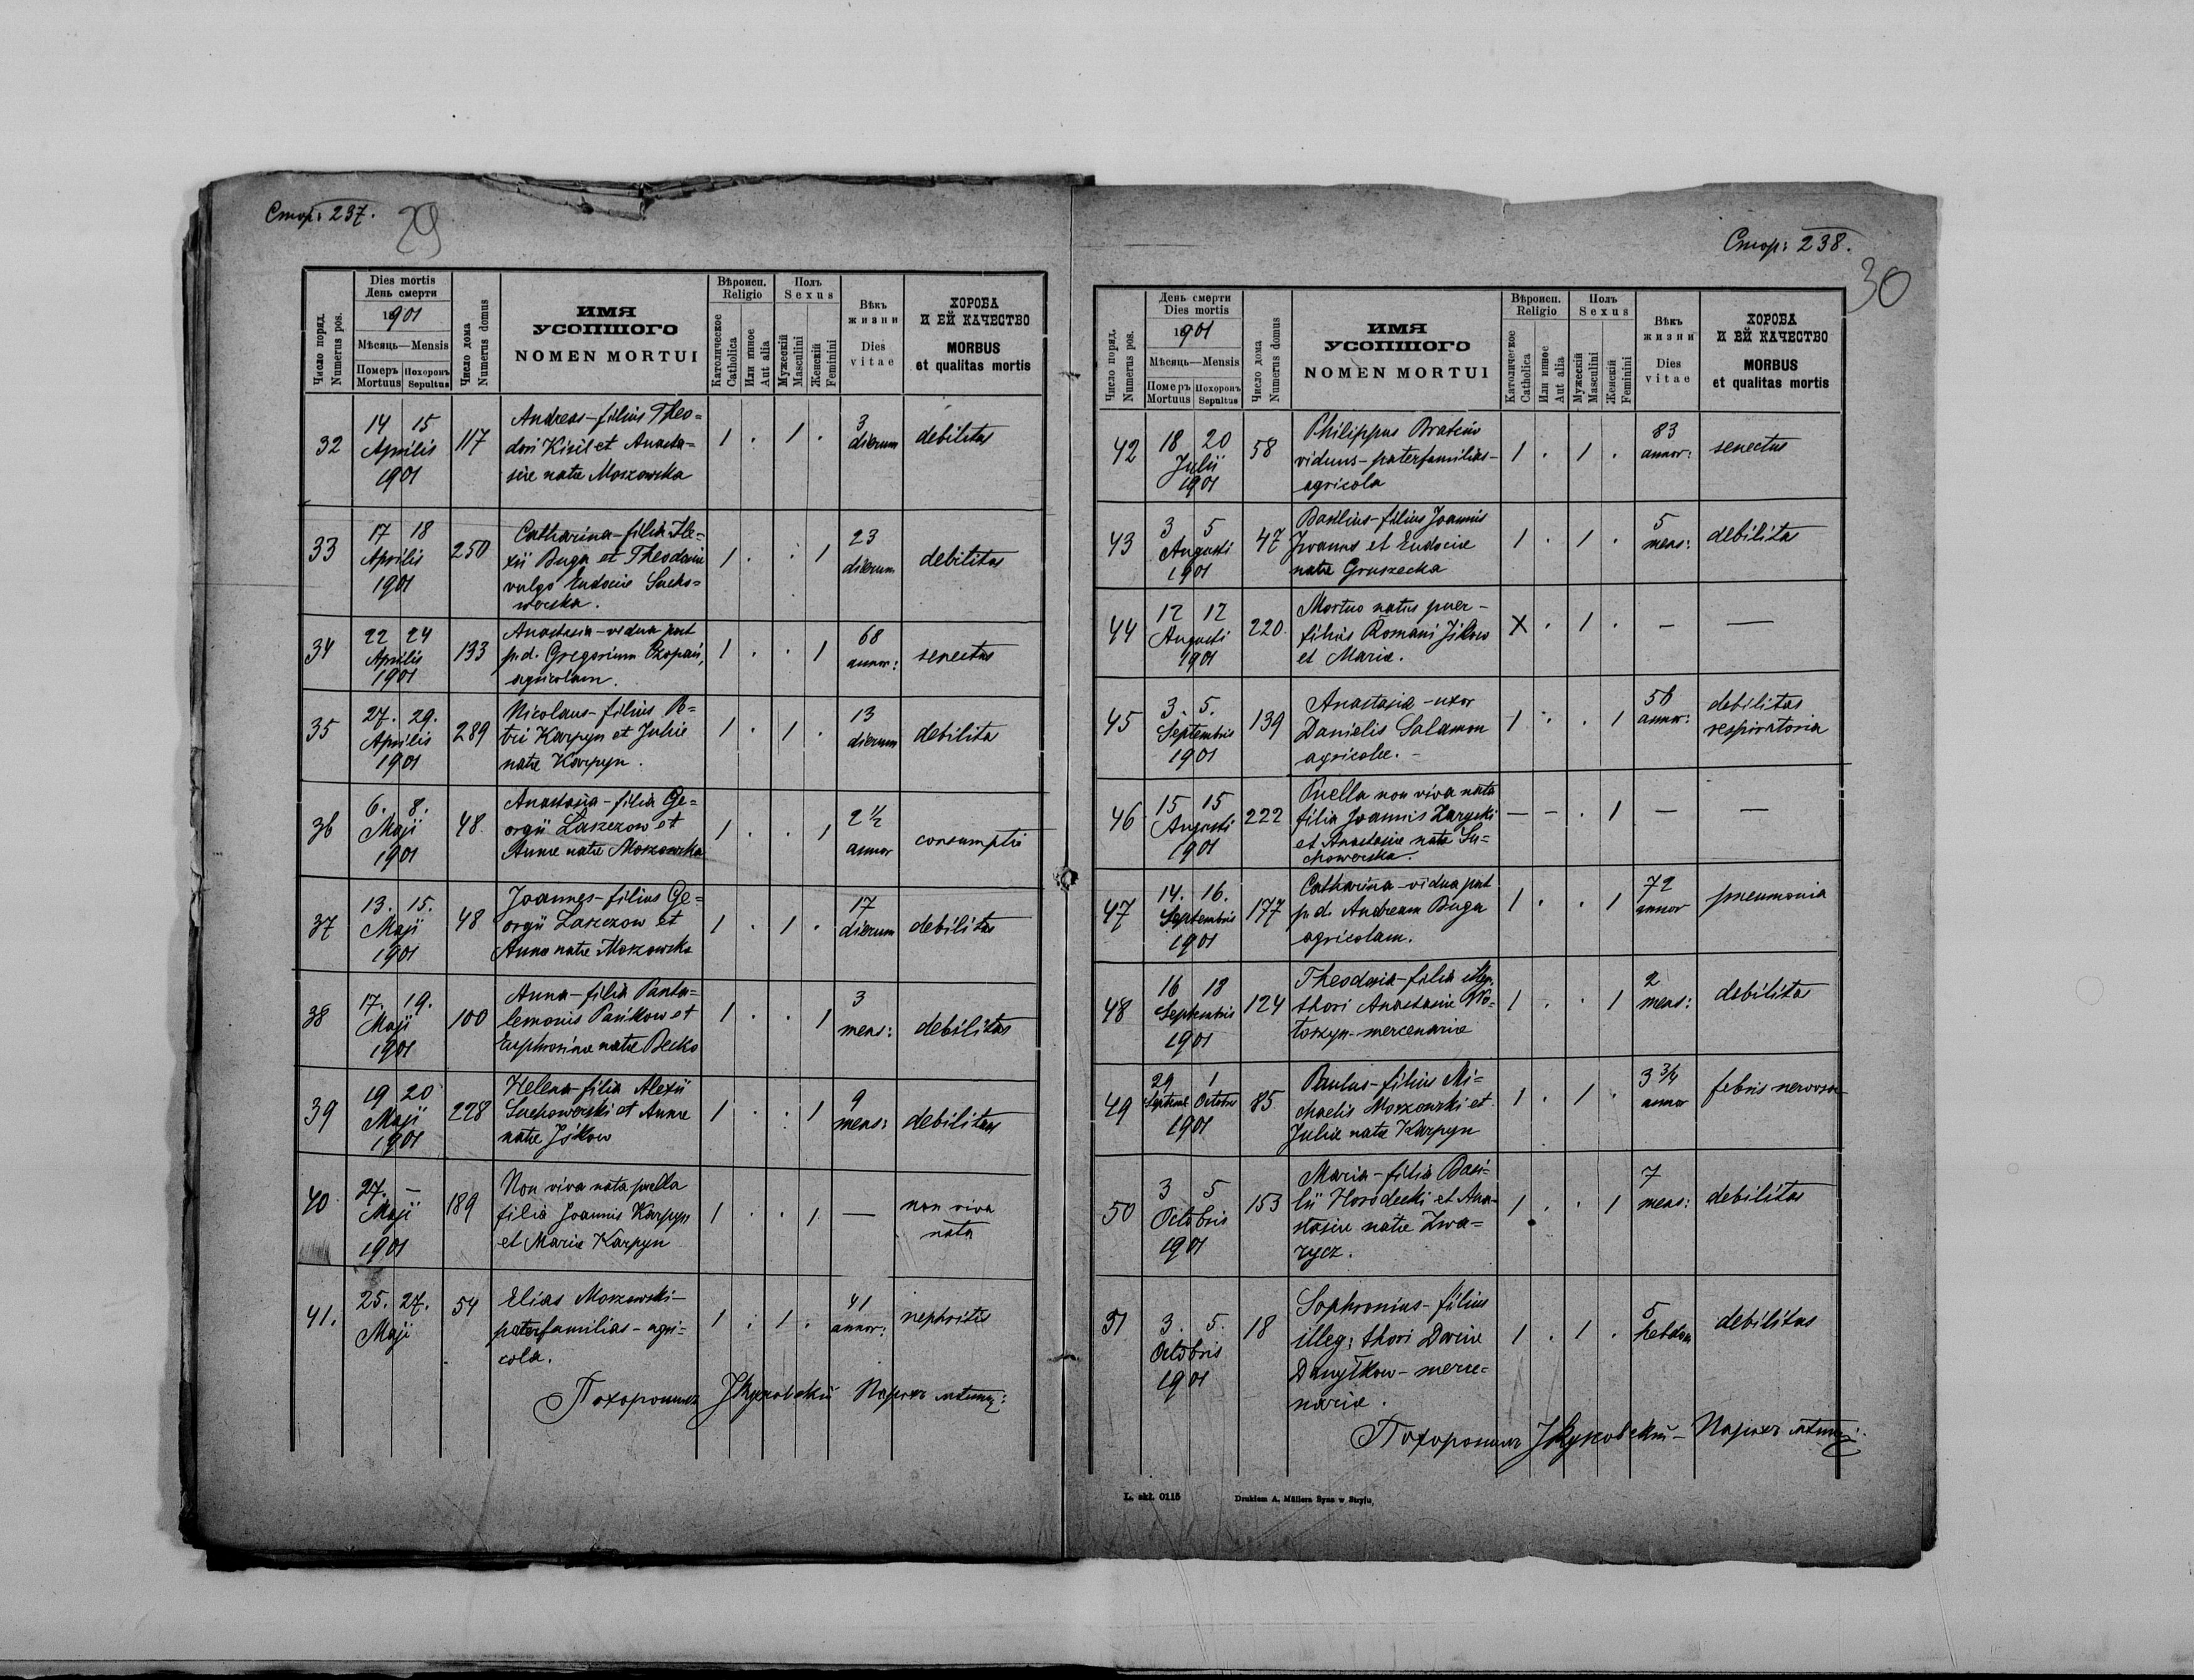 Стор: 237.
29
Число поряд. Numerus pos.
Dies mortis
День смерти
1901
Мѣсяць—Mensis
Померъ Mortuus
Похоронъ Sepultus
Число дома Numerus domus
ИМЯ
УСОПШОГО
NOMEN MORTUI
Вѣроисп.
Religio
Католическое Catholica
Или инное Aut alia
Полъ
Sexus
Мужескій Masculini
Женскій Feminini
Вѣкъ
жизни
Dies
vitae
ХОРОБА
И ЕЙ КАЧЕСТВО
MORBUS
et qualitas mortis
32 14 15 Aprilis 1901 117
Andreas-filius Theo=
dori Kisil et Anasta=
siæ natæ Moszowska
1 . 1 . 3 dierum debilitas
33 17 18 Aprilis 1901 250
Catharina-filia Ale=
xii Buga et Theodoriæ
vulgo Eudociæ Sucho=
werska.
1 . . 1 23 dierum debilitas
34 22 24 Aprilis 1901 133
Anastasia-vidua post
p.d. Gregorium
agricolam.
1 . . 1 68 annor: senectus
35 27. 29. Aprilis 1901 289
Nicolaus-filius Pe=
tri Karpyn et Juliæ
natæ Karpyn.
1 . 1 . 13 dierum debilitas
36 6. 8. Maji 1901 48.
Anastasia-filia Ge=
orgii Laszczow et
Annæ natæ Moszowska
1 . . 1 2½ annor consumptio
37 13. 15. Maji 1901 48
Joannes-filius Ge=
orgii Laszczow et
Annæ natæ Moszowska
1 . 1 . 17 dierum debilitas
38 17. 19. Maji 1901 100
Anna-filia Panta=
lemonis Pankow et
Euphrosinæ natæ Becko
1 . . 1 3 mens: debilitas
39 19 20 Maji 1901 228
Helena-filia Alexii
Suchowerski et Annæ
natæ Jśkow
1 . . 1 9 mens: debilitas
40 27. — Maji 1901 189
Non viva nata puella
filia Joannis Karpyn
et Mariæ Karpyn
1 . . 1 — non viva nata
41. 25. 27. Maji 54
Elias Moszowski-
paterfamilias-agri=
cola.
1 . 1 . 41 annor: nephritis
Похоронилъ Парохъ
Стор: 238.
30
Число поряд. Numerus pos.
День смерти
Dies mortis
1901
Мѣсяць—Mensis
Померъ Mortuus
Похоронъ Sepultus
Число дома Numerus domus
ИМЯ
УСОПШОГО
NOMEN MORTUI
Вѣроисп.
Religio
Католическое Catholica
Или инное Aut alia
Полъ
Sexus
Мужескій Masculini
Женскій Feminini
Вѣкъ
жизни
Dies
vitae
ХОРОБА
И ЕЙ КАЧЕСТВО
MORBUS
et qualitas mortis
42 18 20 Julii 1901 58
Philippus
viduus-paterfamilias-
agricola
1 . 1 . 83 annor: senectus
43 3 5 Augusti 1901 47
Basilius-filius Joannis
Iwanus et Eudociæ
natæ Gruszecka
1 . 1 . 5 mens: debilitas
44 12 12 Augusti 1901 220.
Mortuo natus puer-
filius Romani Jśkow
et Mariæ.
X . 1 . — —
45 3. 5. Septembris 1901 139
Anastasia-uxor
Danielis Salamon
agricolæ.-
1 . . 1 56 annor: debilitas respiratoria
46 15 15 Augusti 1901 222
Puella non viva nata
filia Joannis Zarycki
et Anastasiæ natæ Su=
chowerska.
— — . 1 — —
47 14. 16. Septembris 1901 177
Catharina-vidua post
p.d. Andream Buga
agricolam.
1 . . 1 72 annor pneumonia
48 16 18 Septembris 1901 124
Theodosia-filia illeg.
thori Anastasiæ Wo=
łoszyn-mercenariæ
1 . . 1 2 mens: debilitas
49 29 1 Septemb Octobr 1901 85.
Paulus-filius Mi=
chaelis Moszowski et
Juliæ natæ Karpyn
1 . 1 . 3¾ annor febris nervosa
50 3 5 Octobris 1901 153
Maria-filia Basi=
lii Horodecki et Ana=
stasiæ natæ Zwa=
rycz.
1 . . 1 7 mens: debilitas
51 3. 5. Octobris 1901 18
Sophronius-filius
illeg: thori Dariæ
Danyłkow-merce=
nariæ.
1 . 1 . 5 hebdom debilitas
Похоронилъ Парохъ
L. skł. 0115 Drukiem A. Müllera Syna w Stryju,